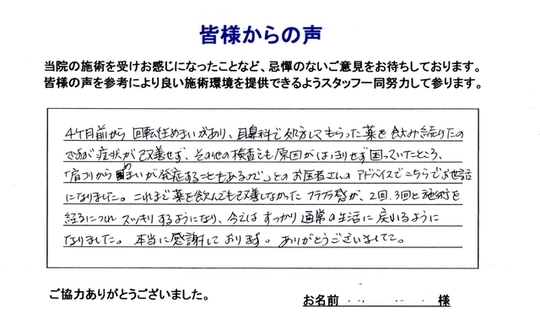 皆様からの声
当院の施術を受けお感じになったことなど、忌憚のないご意見をお待ちしております。
皆様の声を参考により良い施術環境を提供できるようスタッフ一同努力して参ります。
4ヶ月前から回転性めまいがあり、耳鼻科で処方してもらった薬を飲み続けたの
ですが症状が改善せず、その他の検査でも原因がはっきりせず困っていたところ、
「肩こりからめまいが発症することもあるので」とのお医者さんのアドバイスでこちらでお世話
になりました。これまで薬を飲んでも改善しなかったフラフラ感が、2回、3回と施術を
経るにつれスッキリするようになり、今ではすっかり通常の生活に戻れるように
なりました。本当に感謝しております。ありがとうございました。
ご協力ありがとうございました。
お名前 様